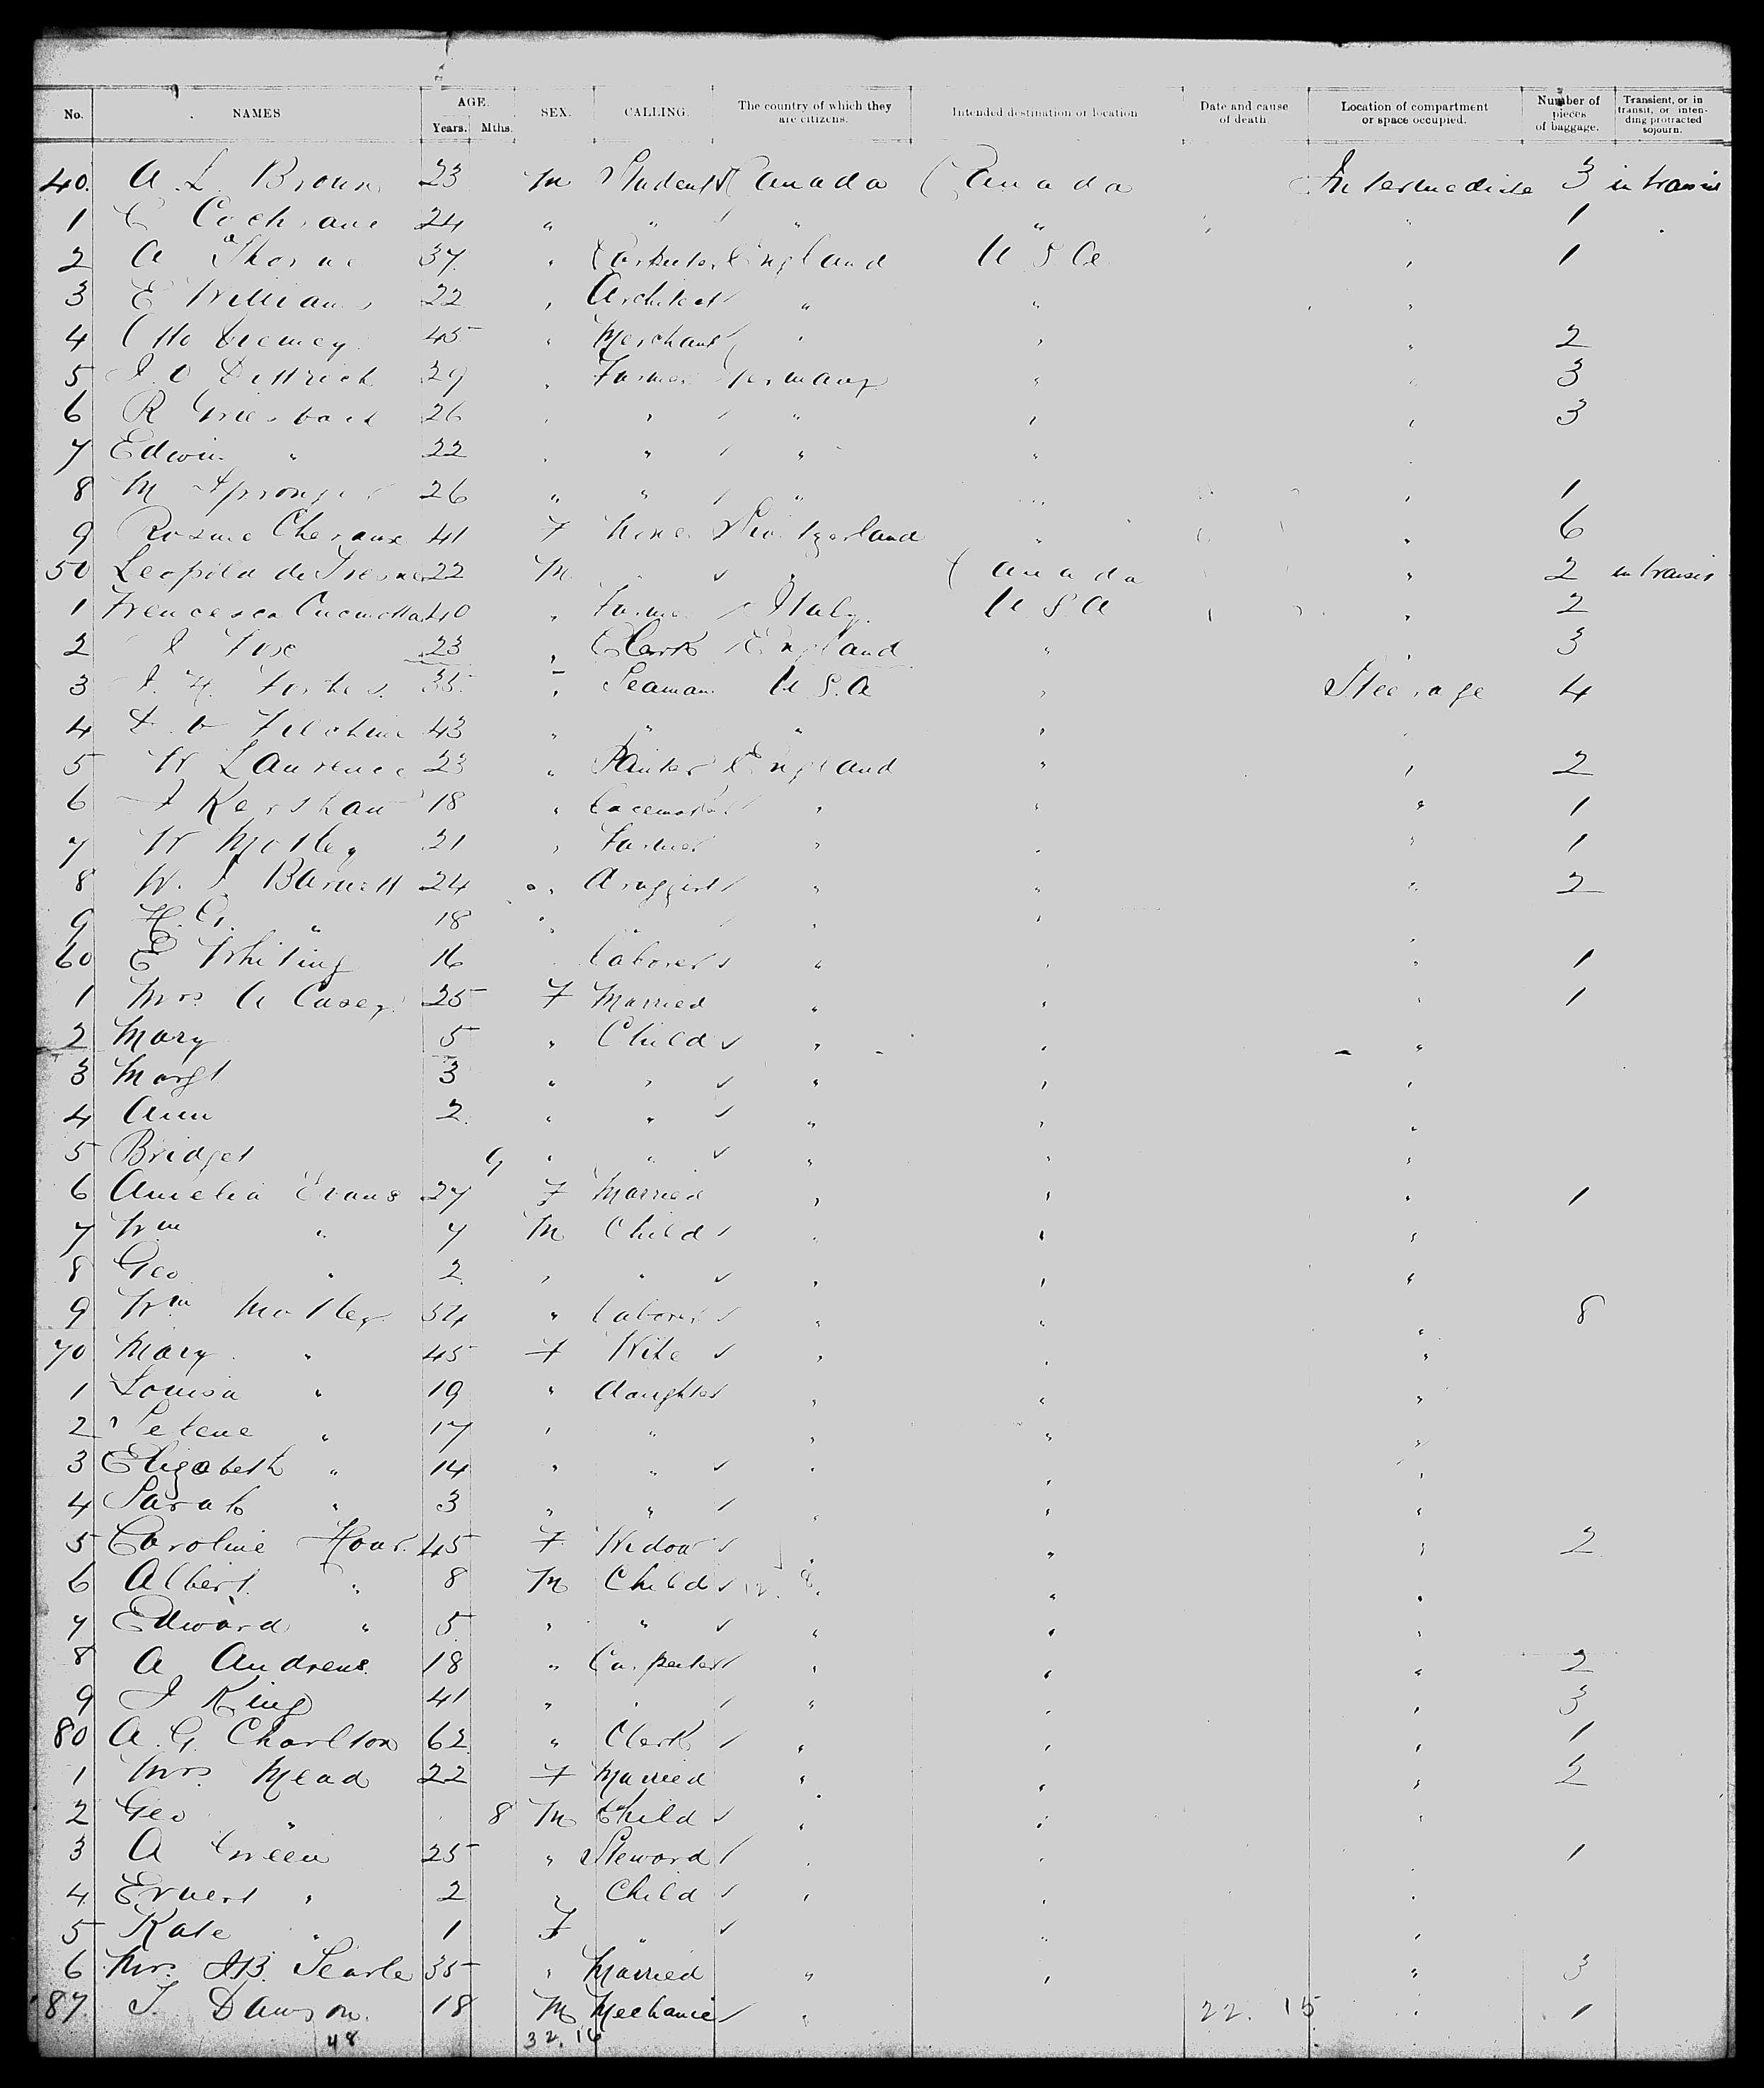 No. NAMES AGE. Years. Mths. SEX. CALLING. The country of which they are citizens. Intended destination or location Date and cause of death. Location of compartment or space occupied. Number of pieces of baggage. Transient, or in transit, or intending protracted sojourn.
40. A L Brown 23 M Student Canada Canada Intermediate 3 in transit
1 C Cochrane 24 " " " " " 1
2 A Thorne 37 " Carpenter England U S A " 1
3 E Williams 22 " Architect " " "
4 Otto 45 " Merchant " " " 2
5 J O Dittrich 29 " Farmer Germany " " 3
6 R Griesbach 26 " " " " " 3
7 Edwin " 22 " " " " "
8 M 26 " " " " " 1
9 41 F None Switzerland " " 6
50 Leopold de 22 M " " Canada " 2 in transit
1 40 " Farmer Italy U S A " 2
2 J Fox 23 " Clerk England " " 3
3 J. H. Forbes 35 " Seaman U S A " Steerage 4
4 43 " " " " "
5 W Laurence 23 " Painter England " " 2
6 J Kershaw 18 " " " " 1
7 W Motley 21 " Farmer " " " 1
8 W. J Barnett 24 " Druggist " " " 2
9 H. G. " 18 " " " " "
60 E Whiting 16 Laborer " " " 1
1 Mrs A Casey 25 F Married " " " 1
2 Mary 5 " Child " " "
3 Margt 3 " " " " "
4 Ann 2 " " " " "
5 Bridget 9 " " " " "
6 Amelia Evans 27 F Married " " " 1
7 Wm " 7 M Child " " "
8 Geo " 2 " " " " "
9 Wm Motley 54 " Laborer " " " 8
70 Mary " 45 F Wife " " "
1 Louisa " 19 " daughter " " "
2 Selene " 17 " " " " "
3 Elizabeth " 14 " " " " "
4 Sarah " 3 " " " " "
5 Caroline Hoar 45 F Widow " " " 2
6 Albert " 8 M Child " " "
7 Edward " 5 " " " " "
8 A Andrews 18 " Carpenter " " " 2
9 J King 41 " " " " " 3
80 A. G. Charlton 62 " Clerk " " " 1
1 Mrs. Mead 22 F Married " " " 2
2 Geo " 8 M Child " " "
3 A Green 25 " Steward " " " 1
4 Ernest " 2 " Child " " "
5 Kate " 1 F " " "
6 Mrs. J B. Searle 35 " Married " " " 3
87. J. Dawson 18 M Mechanic " 22. 15 " 1
48 32. 16